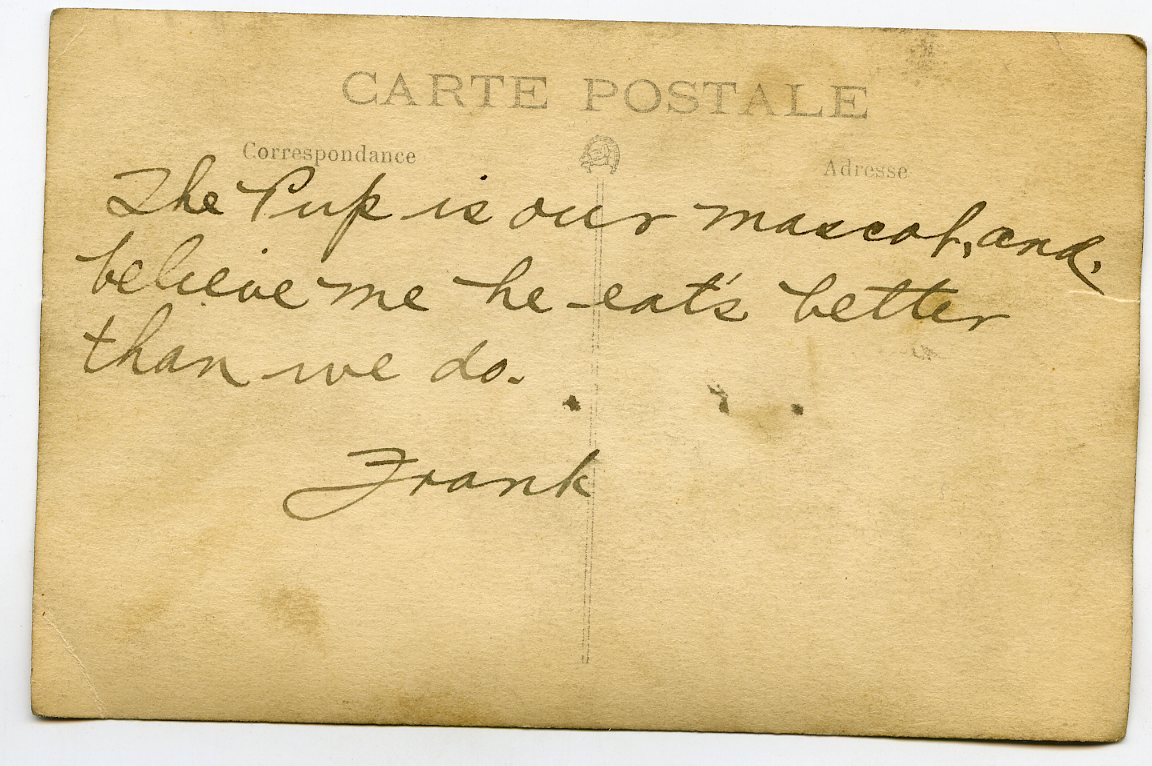 CARTE POSTALE
Correspondance
Adresse
The Pup is our mascot, and,
believe me he eat's better
than we do.
Frank